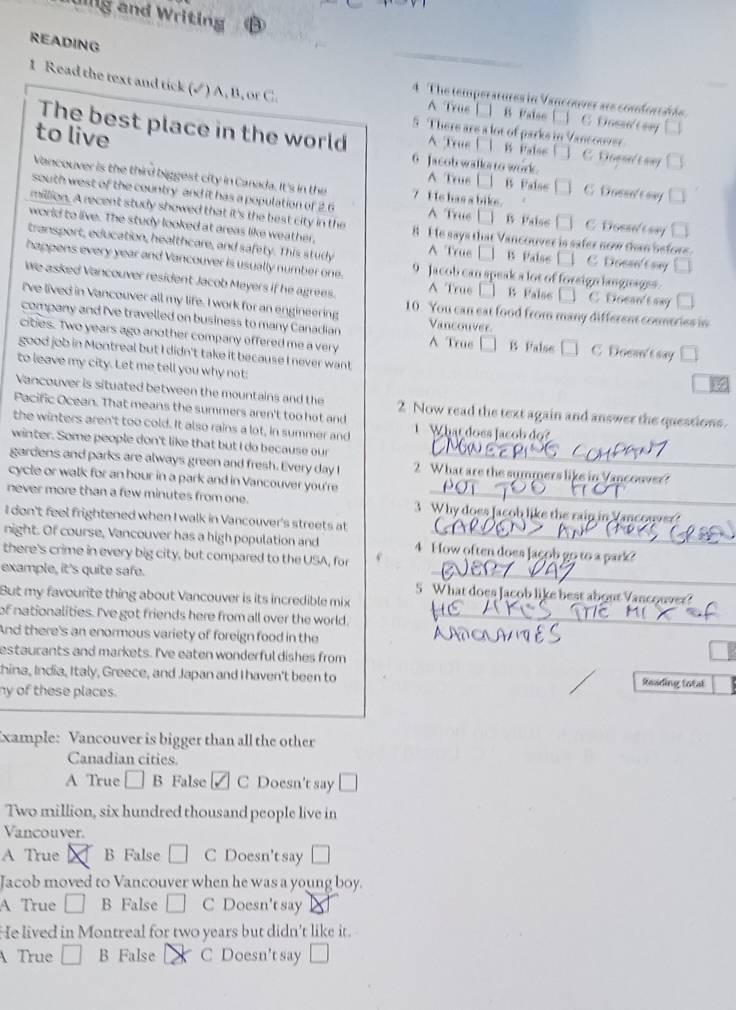 ing and Writing B
READING
1 Read the text and tick (✓) A, B, or C.
The best place in the world
to live
Vancouver is the third biggest city in Canada. It's in the
south west of the country and it has a population of 2.6
million. A recent study showed that it's the best city in the
world to live. The study looked at areas like weather,
transport, education, healthcare, and safety. This study
happens every year and Vancouver is usually number one.
We asked Vancouver resident Jacob Meyers if he agrees.
I've lived in Vancouver all my life. I work for an engineering
company and I've travelled on business to many Canadian
cities. Two years ago another company offered me a very
good job in Montreal but I didn't take it because I never want
to leave my city. Let me tell you why not:
Vancouver is situated between the mountains and the
Pacific Ocean. That means the summers aren't too hot and
the winters aren't too cold. It also rains a lot, in summer and
winter. Some people don't like that but I do because our
gardens and parks are always green and fresh. Every day I
cycle or walk for an hour in a park and in Vancouver you're
never more than a few minutes from one.
I don't feel frightened when I walk in Vancouver's streets at
night. Of course, Vancouver has a high population and
there's crime in every big city, but compared to the USA, for
example, it's quite safe.
But my favourite thing about Vancouver is its incredible mix
of nationalities. I've got friends here from all over the world.
And there's an enormous variety of foreign food in the
estaurants and markets. I've eaten wonderful dishes from
hina, India, Italy, Greece, and Japan and I haven't been to
ny of these places.
Example: Vancouver is bigger than all the other
Canadian cities.
A True B False ✓ C Doesn't say
Two million, six hundred thousand people live in
Vancouver.
A True X B False C Doesn't say
Jacob moved to Vancouver when he was a young boy.
A True B False C Doesn't say X
He lived in Montreal for two years but didn't like it.
A True B False X C Doesn't say
4 The temperatures in Vancouver are comfortable.
A True B False C Doesn't say
5 There are a lot of parks in Vancouver.
A True B False C Doesn't say
6 Jacob walks to work.
A True B False C Doesn't say
7 He has a bike.
A True B False C Doesn't say
8 He says that Vancouver is safer now than before.
A True B False C Doesn't say
9 Jacob can speak a lot of foreign languages.
A True B False C Doesn't say
10 You can eat food from many different countries in
Vancouver.
A True B False C Doesn't say
2 Now read the text again and answer the questions.
1 What does Jacob do?
ENGINEERING COMPANY
2 What are the summers like in Vancouver?
NOT TOO HOT
3 Why does Jacob like the rain in Vancouver?
GARDENS AND PARKS GREEN
4 How often does Jacob go to a park?
EVERY DAY
5 What does Jacob like best about Vancouver?
HE LIKES THE MIX OF
NATIONALITIES
Reading total